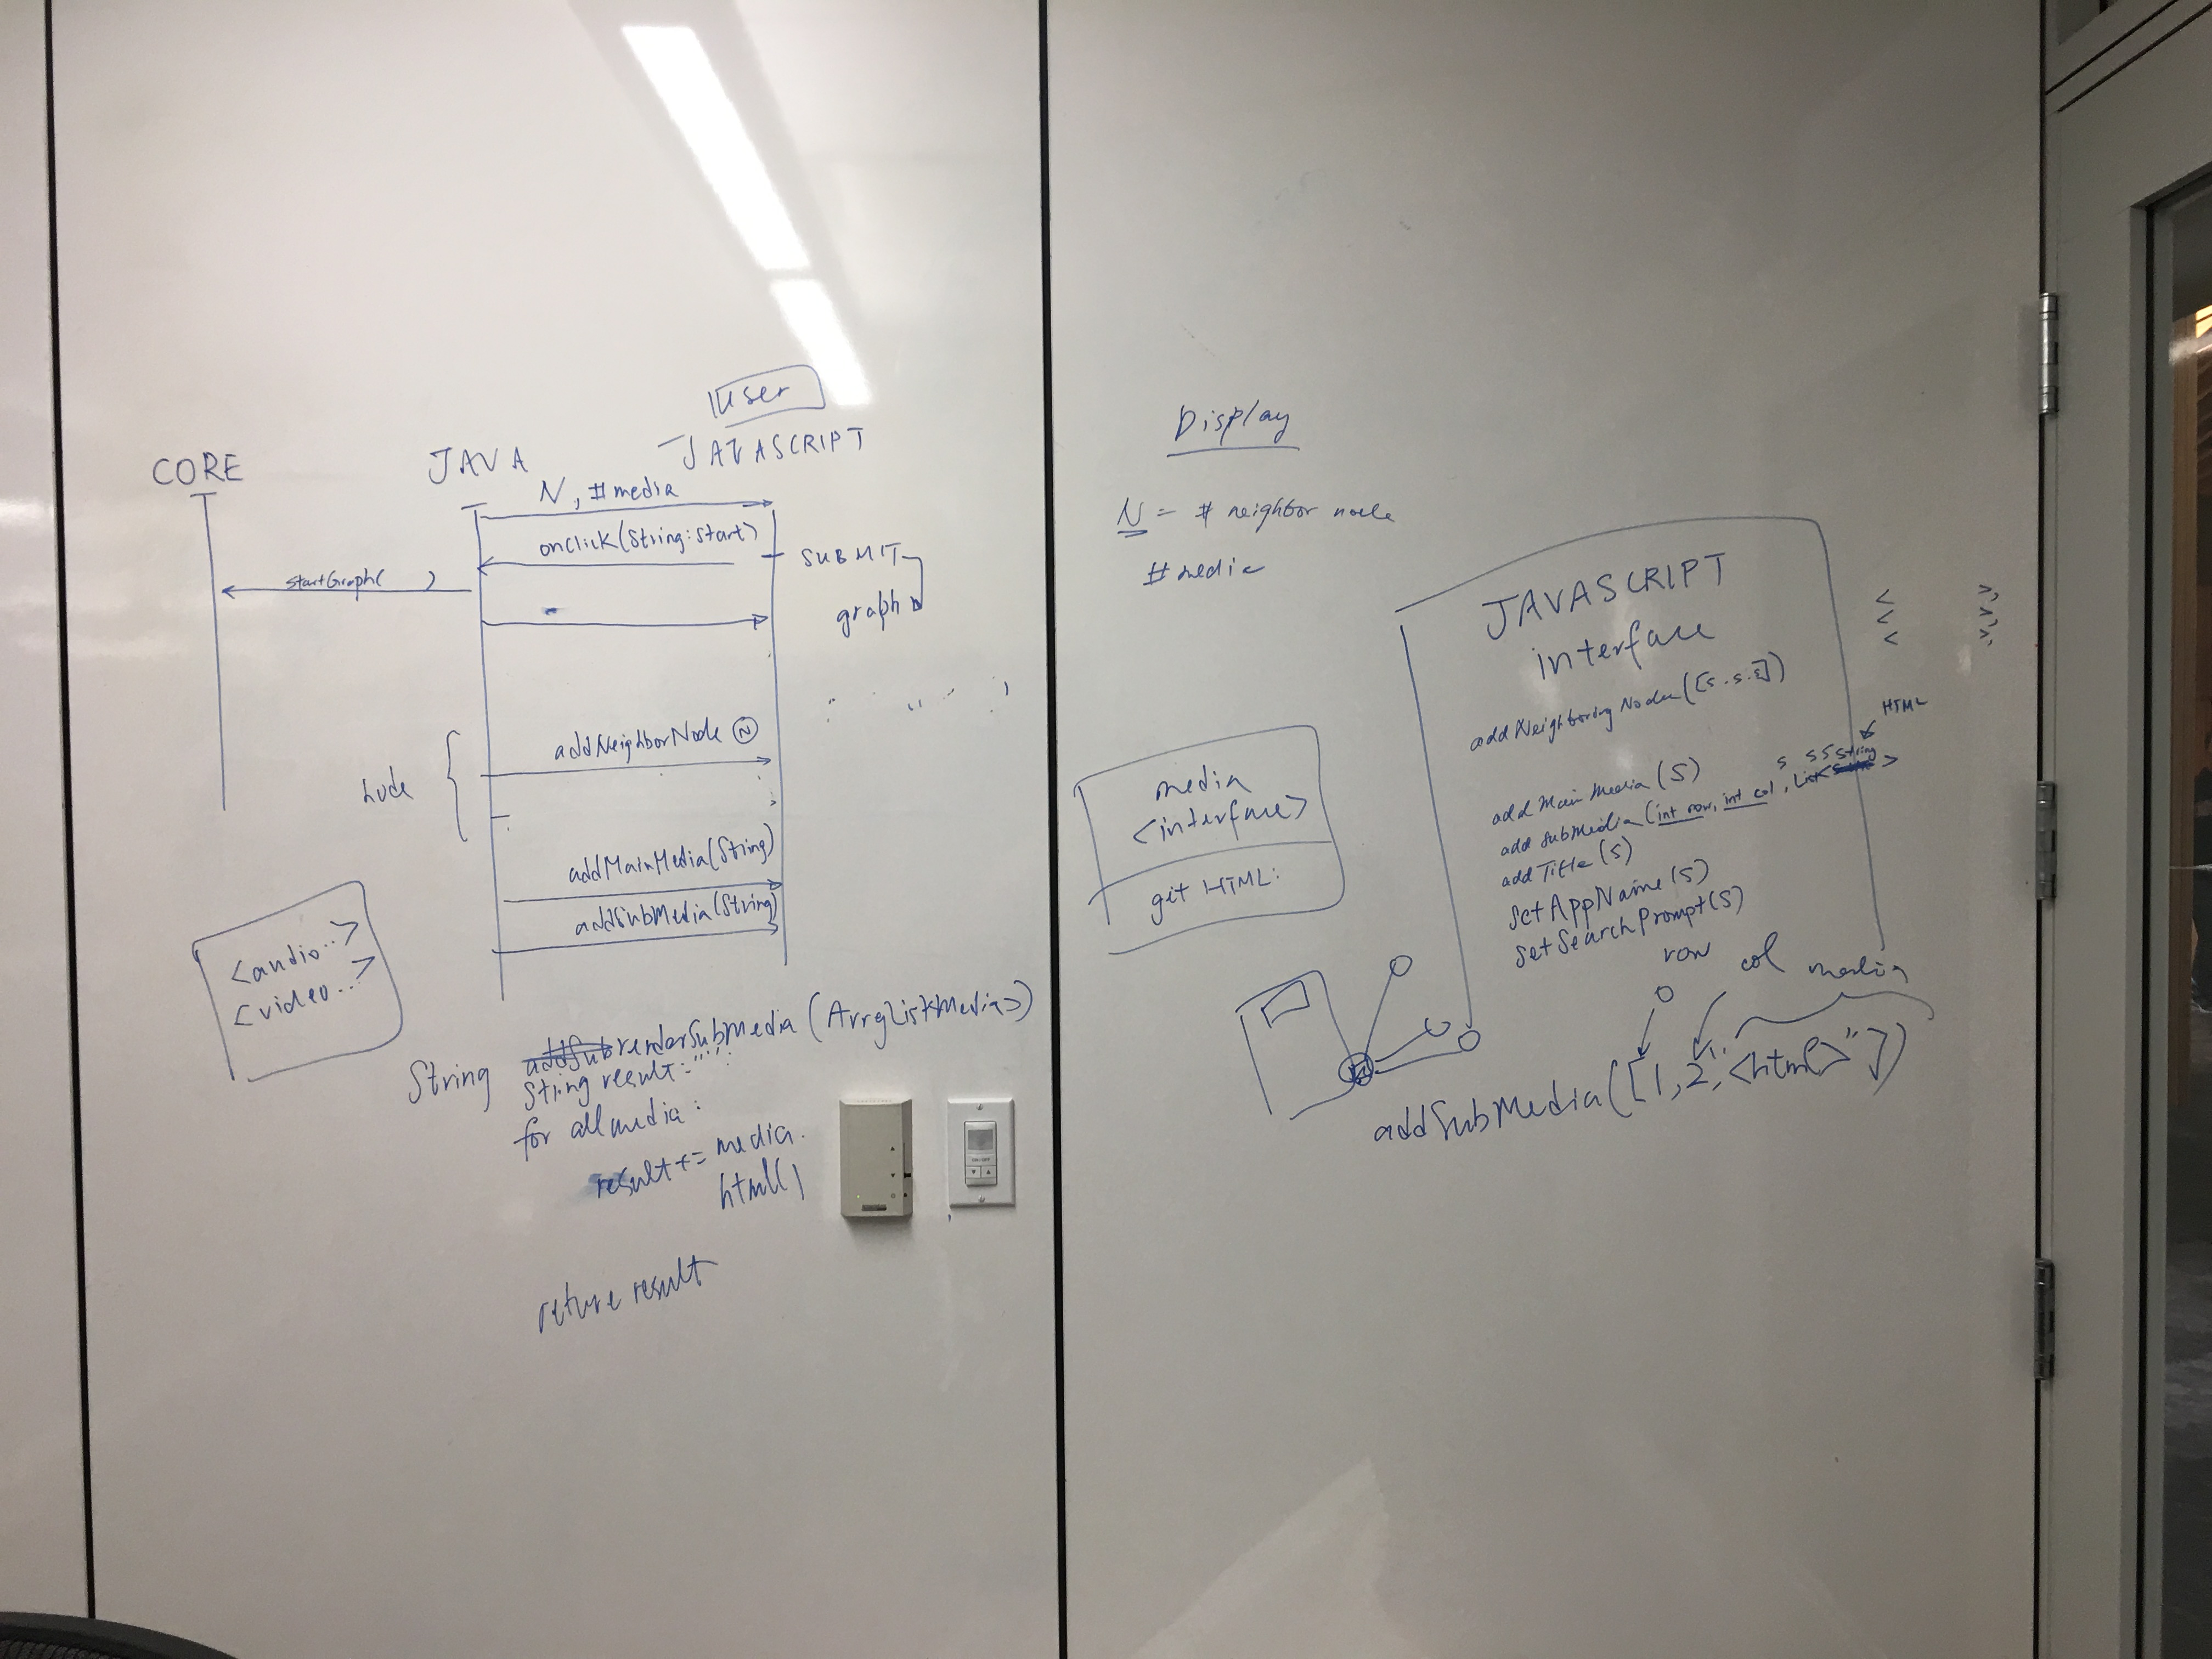 user
CORE
JAVA
JAVASCRIPT
N, #media
onclick(String:start)
SUBMIT
startGraph( )
graph
addNeighborNode Ⓝ
addMainMedia(String)
addSubMedia(String)
<audio...>
<video...>
String addSub renderSubMedia (ArrayList<Media>)
String result = "";
for all media:
result += media.
html()
return result
Display
N = # neighbor node
#media
media
<interface>
get HTML:
JAVASCRIPT
interface
addNeighboringNodes([s.s.s])
HTML
addMainMedia(S)
addSubMedia(int row, int col, List String>
addTitle(S)
setAppName(S)
setSearchPrompt(S)
row col media
addSubMedia([1,2,"<html>"])